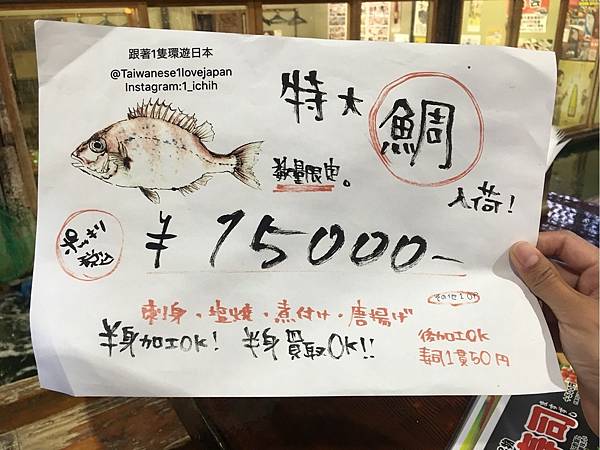 跟著1隻環遊日本
@Taiwanese1lovejapan
Instagram:1_ichih
特大 鯛
数量限定。
入荷!
ポッキリ
税込
¥15000-
刺身・塩焼・煮付け・唐揚げ
半身加工OK! 半身買取OK!!
後加工OK
寿司1貫50円